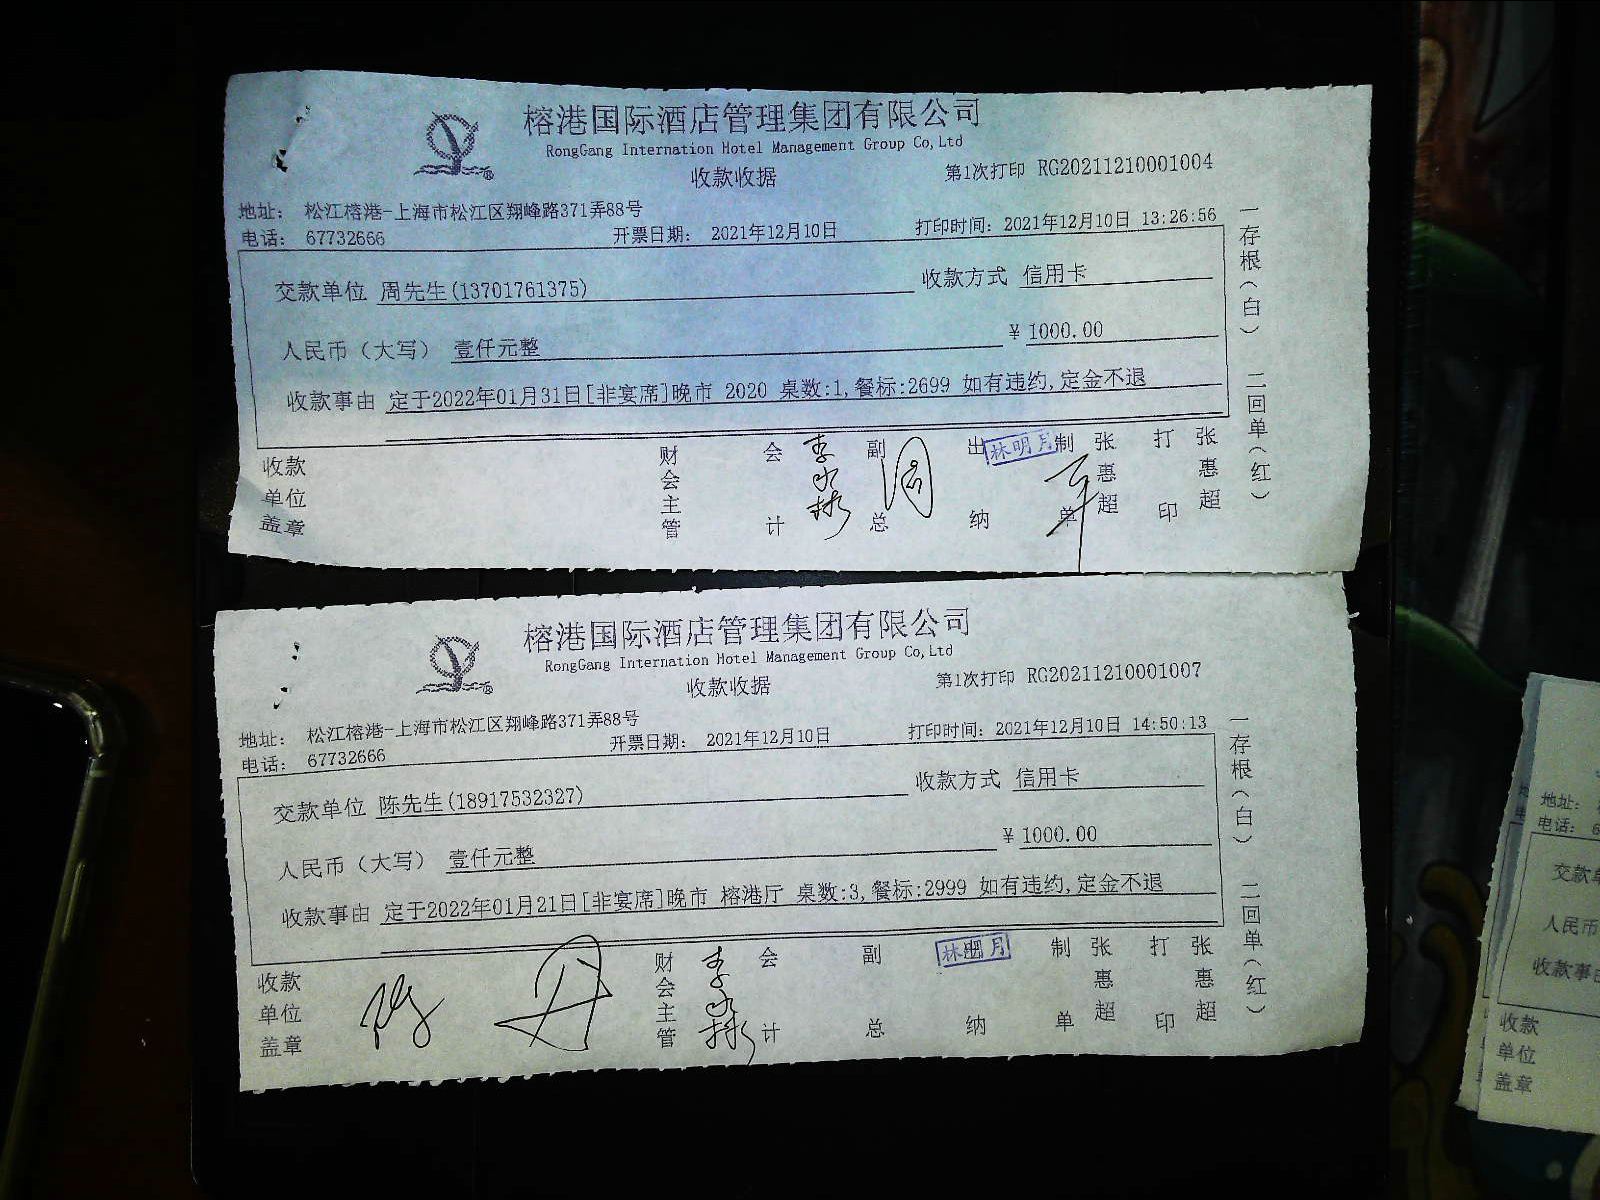 榕港国际酒店管理集团有限公司
RongGang Internation Hotel Management Group Co,Ltd
收款收据
第1次打印 RG20211210001004
地址： 松江榕港-上海市松江区翔峰路371弄88号
电话： 67732666
开票日期： 2021年12月10日
打印时间：2021年12月10日 13:26:56
交款单位 周先生(13701761375)
收款方式 信用卡
人民币（大写） 壹仟元整
¥ 1000.00
收款事由 定于2022年01月31日[非宴席]晚市 2020 桌数:1,餐标:2699 如有违约,定金不退
收款单位盖章
财会主管
会计
副总
出纳
林明月
制单
张惠超
打印
张惠超
一存根（白） 二回单（红）
榕港国际酒店管理集团有限公司
RongGang Internation Hotel Management Group Co,Ltd
收款收据
第1次打印 RG20211210001007
地址： 松江榕港-上海市松江区翔峰路371弄88号
电话： 67732666
开票日期： 2021年12月10日
打印时间：2021年12月10日 14:50:13
交款单位 陈先生(18917532327)
收款方式 信用卡
人民币（大写） 壹仟元整
¥ 1000.00
收款事由 定于2022年01月21日[非宴席]晚市 榕港厅 桌数:3,餐标:2999 如有违约,定金不退
收款单位盖章
财会主管
会计
副总
纳
林明月
制单
张惠超
打印
张惠超
一存根（白） 二回单（红）
地址：
电话： 6
交款单
人民币
收款事由
收款
单位
盖章